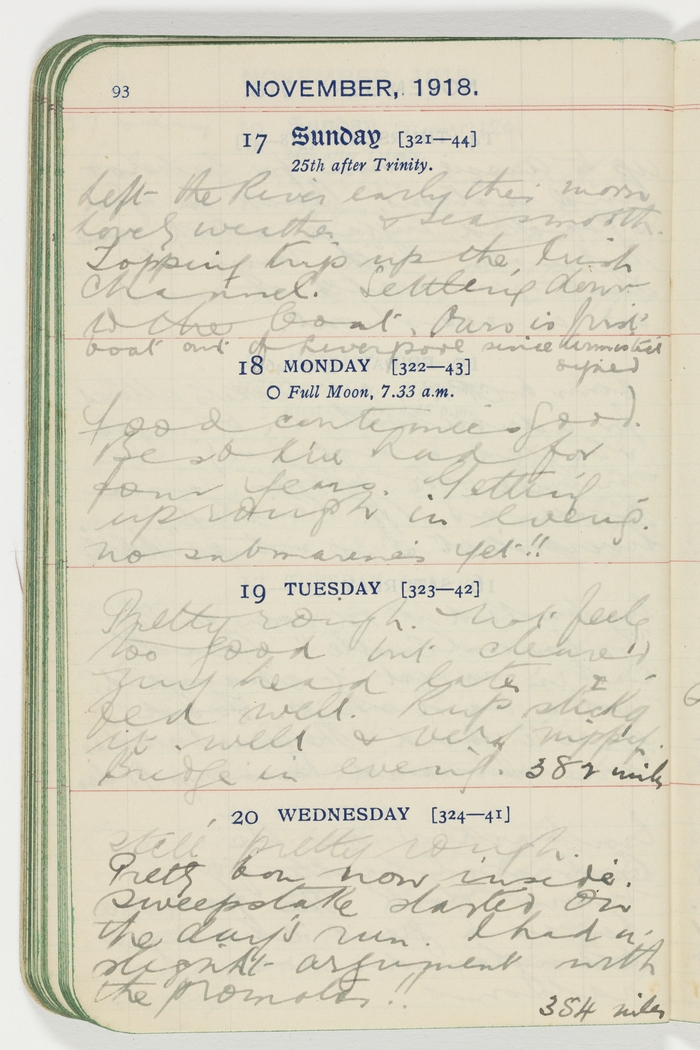 93 NOVEMBER, 1918.
17 Sunday [321—44]
25th after Trinity.
Left the River early this morn
Lovely weather & sea smooth.
Topping trip up the Irish
Channel. Settling down
to the boat. Ours is first
boat out of Liverpool since armistice
signed
18 MONDAY [322—43]
O Full Moon, 7.33 a.m.
Food continues good.
Best I've had for
four years. Getting
up rough in eveng.
no submarines yet!!
19 TUESDAY [323—42]
Pretty rough. Not feelg
too good but cleared
my head later I
fed well. sticks
it well & very nippy.
Bridge in eveng. 382 miles
20 WEDNESDAY [324—41]
Still pretty rough.
Pretty now inside.
Sweepstake started on
the day's run. I had a
slight argument with
the promoter!!
384 miles